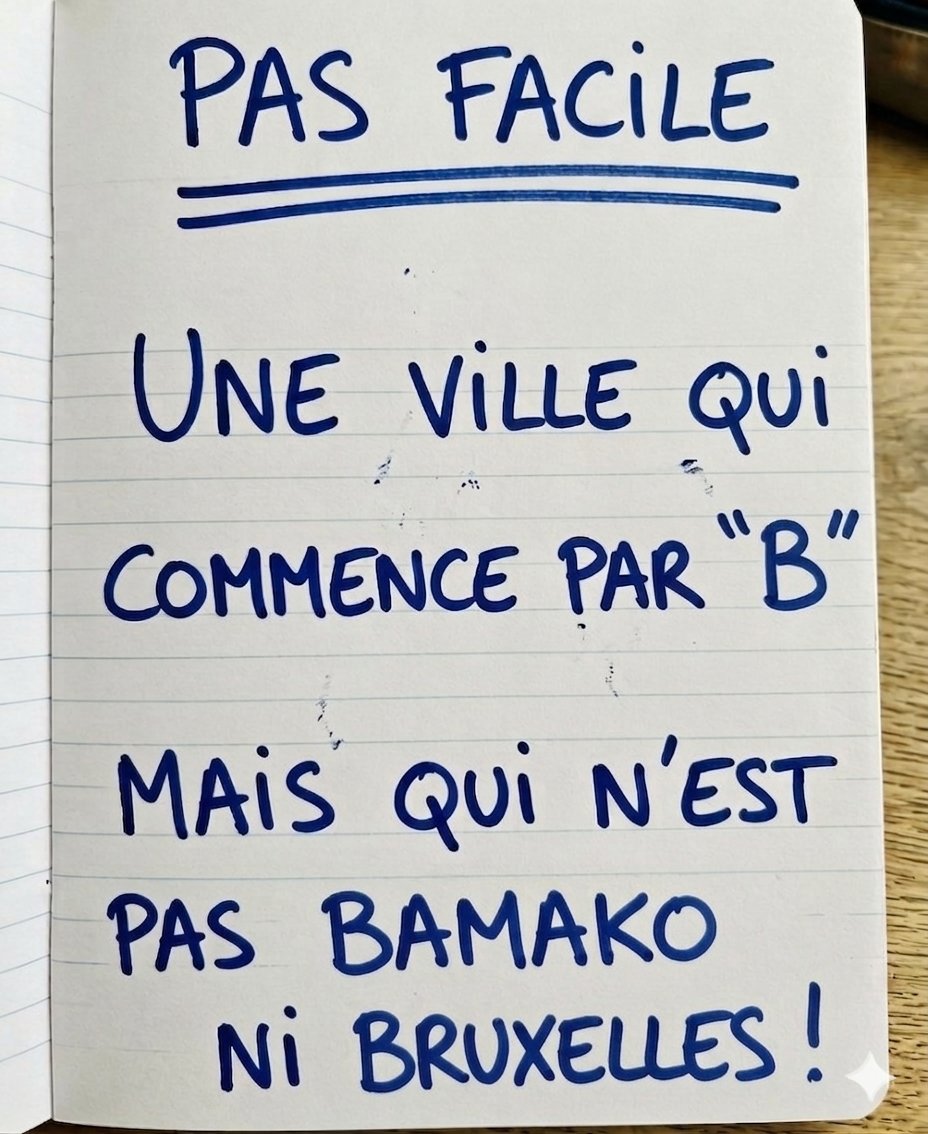 PAS FACILE
UNE VILLE QUI
COMMENCE PAR "B"
MAIS QUI N'EST
PAS BAMAKO
NI BRUXELLES !